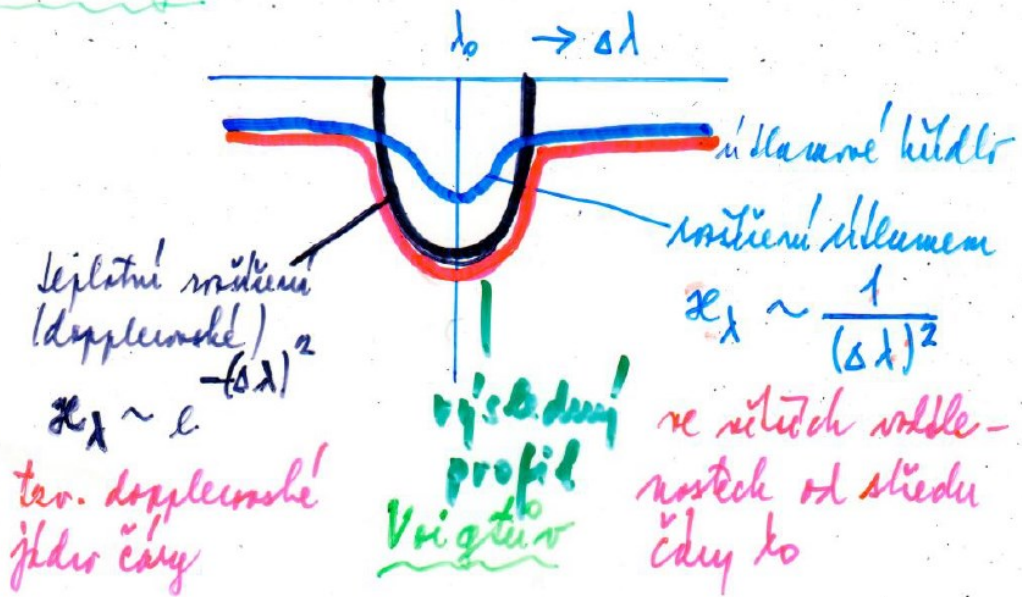 λ₀ → Δλ
útlumové křídlo
rozšíření útlumem
ϰ_λ ~ 1/(Δλ)²
teplotní rozšíření
(dopplerovské)
ϰ_λ ~ e^-(Δλ)²
tzv. dopplerovské
jádro čáry
výsledný
profil
Voigtův
ve větších vzdále-
nostech od středu
čáry λ₀